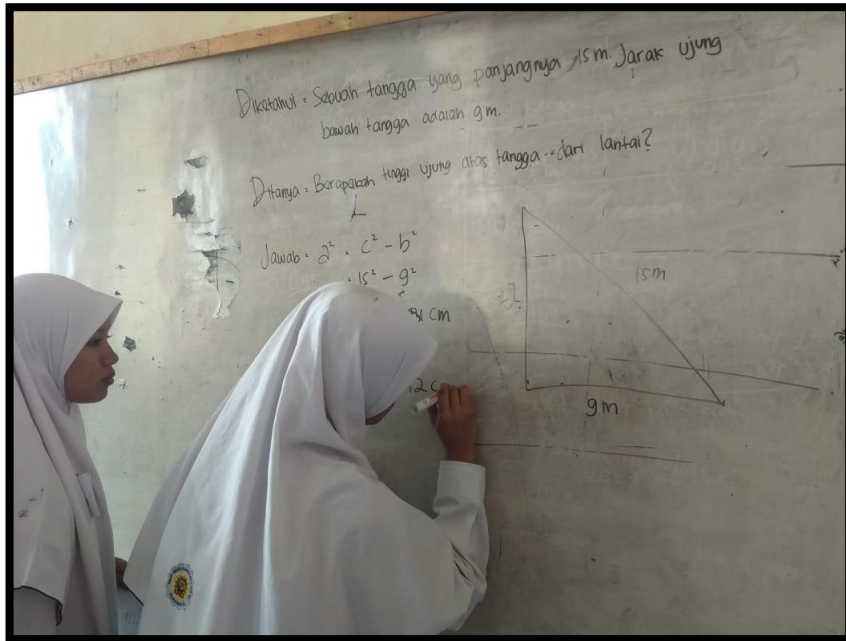 Diketahui : Sebuah tangga yang panjangnya 15 m. Jarak ujung
bawah tangga adalah 9 m.
Ditanya : Berapakah tinggi ujung atas tangga dari lantai?
Jawab : a² = c² - b²
= 15² - 9²
81 cm
12 c
15 m
9 m